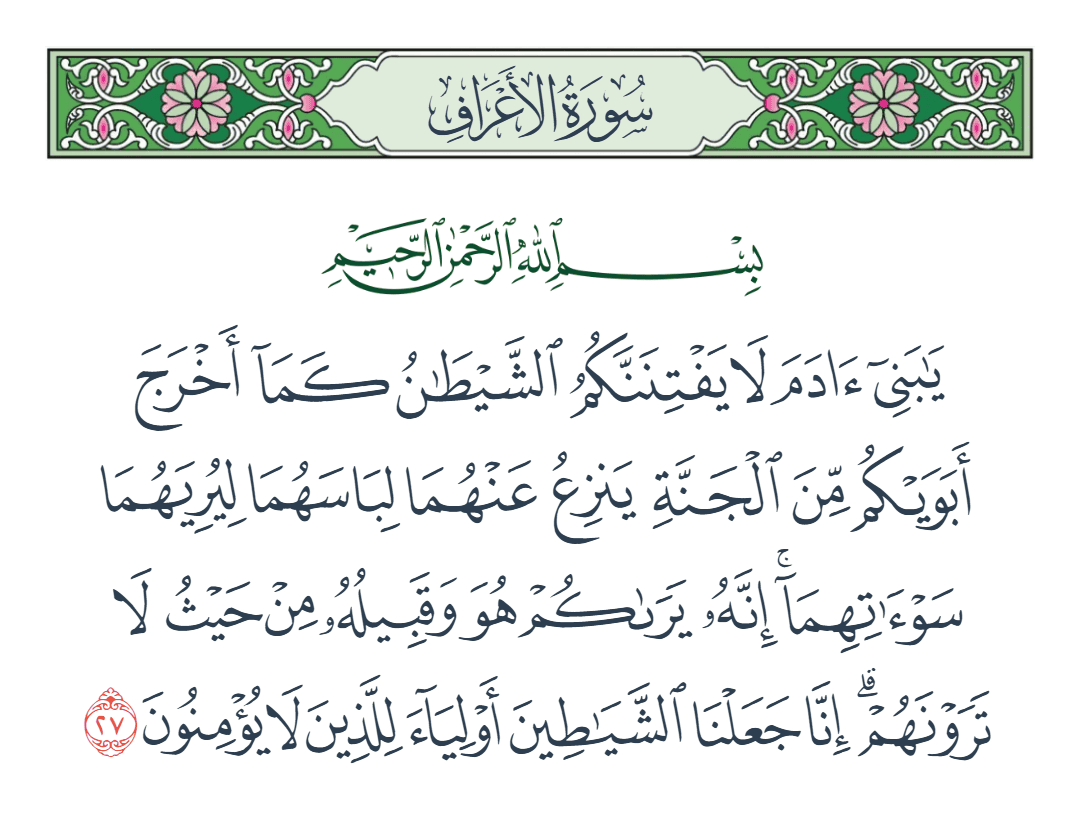 سُورَةُ الأَعْرَافِ
بِسْمِ ٱللَّهِ ٱلرَّحْمَٰنِ ٱلرَّحِيمِ
يَٰبَنِىٓ ءَادَمَ لَا يَفْتِنَنَّكُمُ ٱلشَّيْطَٰنُ كَمَآ أَخْرَجَ
أَبَوَيْكُم مِّنَ ٱلْجَنَّةِ يَنزِعُ عَنْهُمَا لِبَاسَهُمَا لِيُرِيَهُمَا
سَوْءَٰتِهِمَآ ۚ إِنَّهُۥ يَرَىٰكُمْ هُوَ وَقَبِيلُهُۥ مِنْ حَيْثُ لَا
تَرَوْنَهُمْ ۗ إِنَّا جَعَلْنَا ٱلشَّيَٰطِينَ أَوْلِيَآءَ لِلَّذِينَ لَا يُؤْمِنُونَ ٢٧